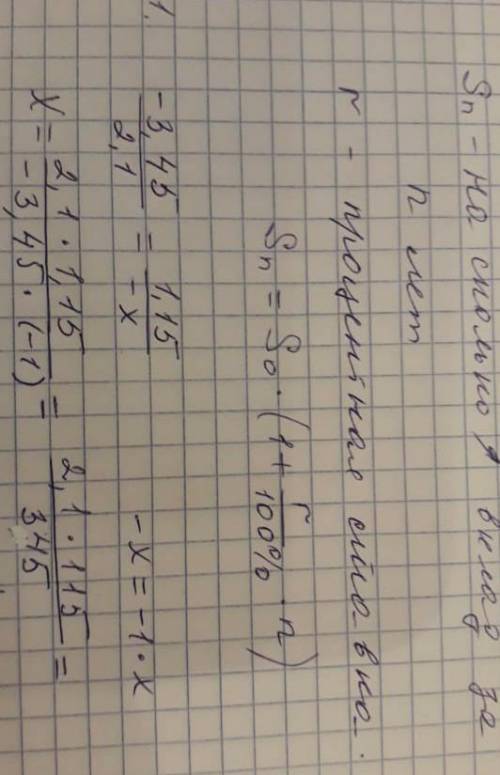 Sn - на столько ↑ вклад за
n лет
r - процентная ставка.
Sn = S0 · (1 + r/100% · n)
1.
-3,45/2,1 = 1,15/-x
-x = -1 · x
x = 2,1 · 1,15/-3,45 · (-1) = 2,1 · 115/345 =